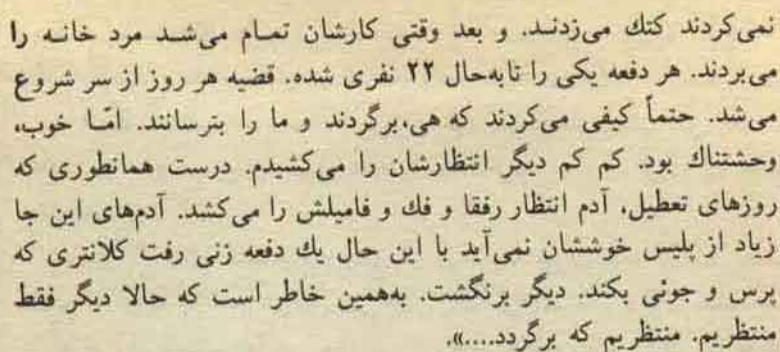 نمی‌کردند کتك می‌زدنـد. و بعد وقتی کارشان تمـام می‌شـد مرد خانـه را
می‌بردند. هر دفعه یکی را تابه‌حال ۲۲ نفری شده. قضیه هر روز از سر شروع
می‌شد. حتماً کیفی می‌کردند که هی، برگردند و ما را بترسانند. امّـا خوب،
وحشتناك بود. کم کم دیگر انتظارشان را می‌کشیدم. درست همانطوری که
روزهای تعطیل، آدم انتظار رفقا و فك و فامیلش را می‌کشد. آدم‌های این جا
زیاد از پلیس خوششان نمی‌آید با این حال یك دفعه زنی رفت کلانتری که
پرس و جوئی بکند. دیگر برنگشت. به‌همین خاطر است که حالا دیگر فقط
منتظریم. منتظریم که برگردد....».